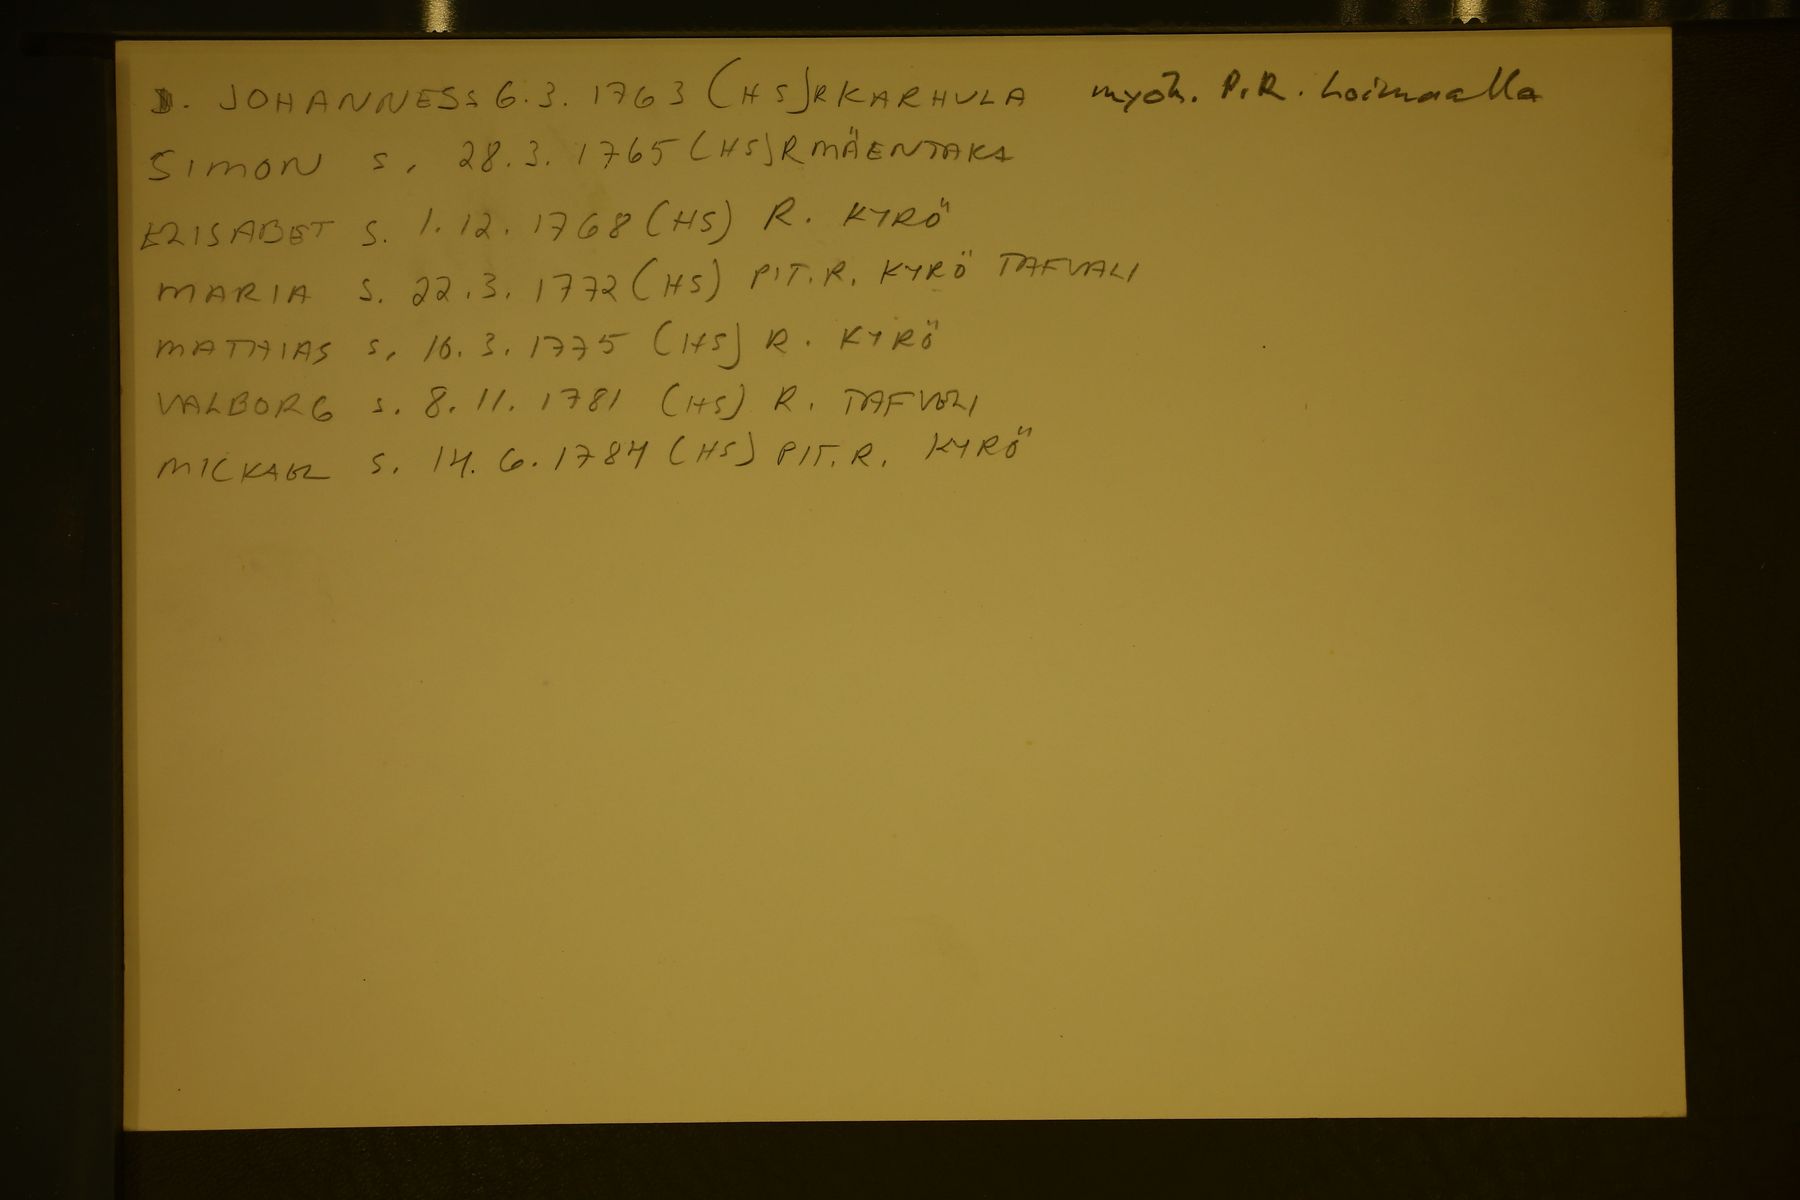 D. JOHANNES S 6.3. 1763 (HS) R KARHULA myöh. P.R. Loimaalla
SIMON S. 28.3. 1765 (HS) R MÄENTAKA
ELISABET S. 1.12. 1768 (HS) R. KYRÖ
MARIA S. 22.3. 1772 (HS) PIT.R. KYRÖ TAFVALI
MATHIAS S. 16.3. 1775 (HS) R. KYRÖ
VALBORG S. 8.11. 1781 (HS) R. TAFVALI
MICKAEL S. 14.6. 1784 (HS) PIT.R. KYRÖ